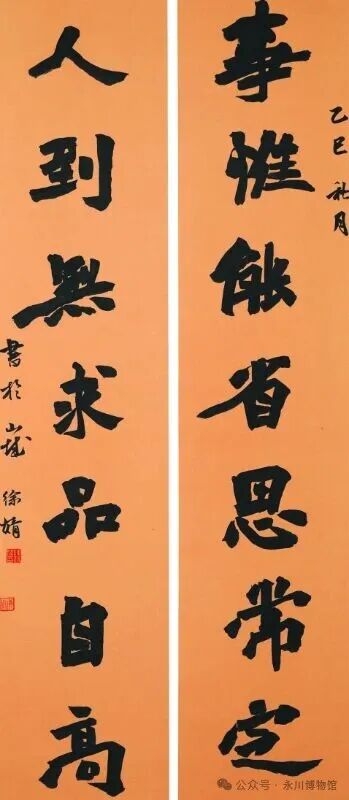 乙巳 秋月
事惟能省思常定
人到無求品自高
書於山城 徐
公众号 · 永川博物馆